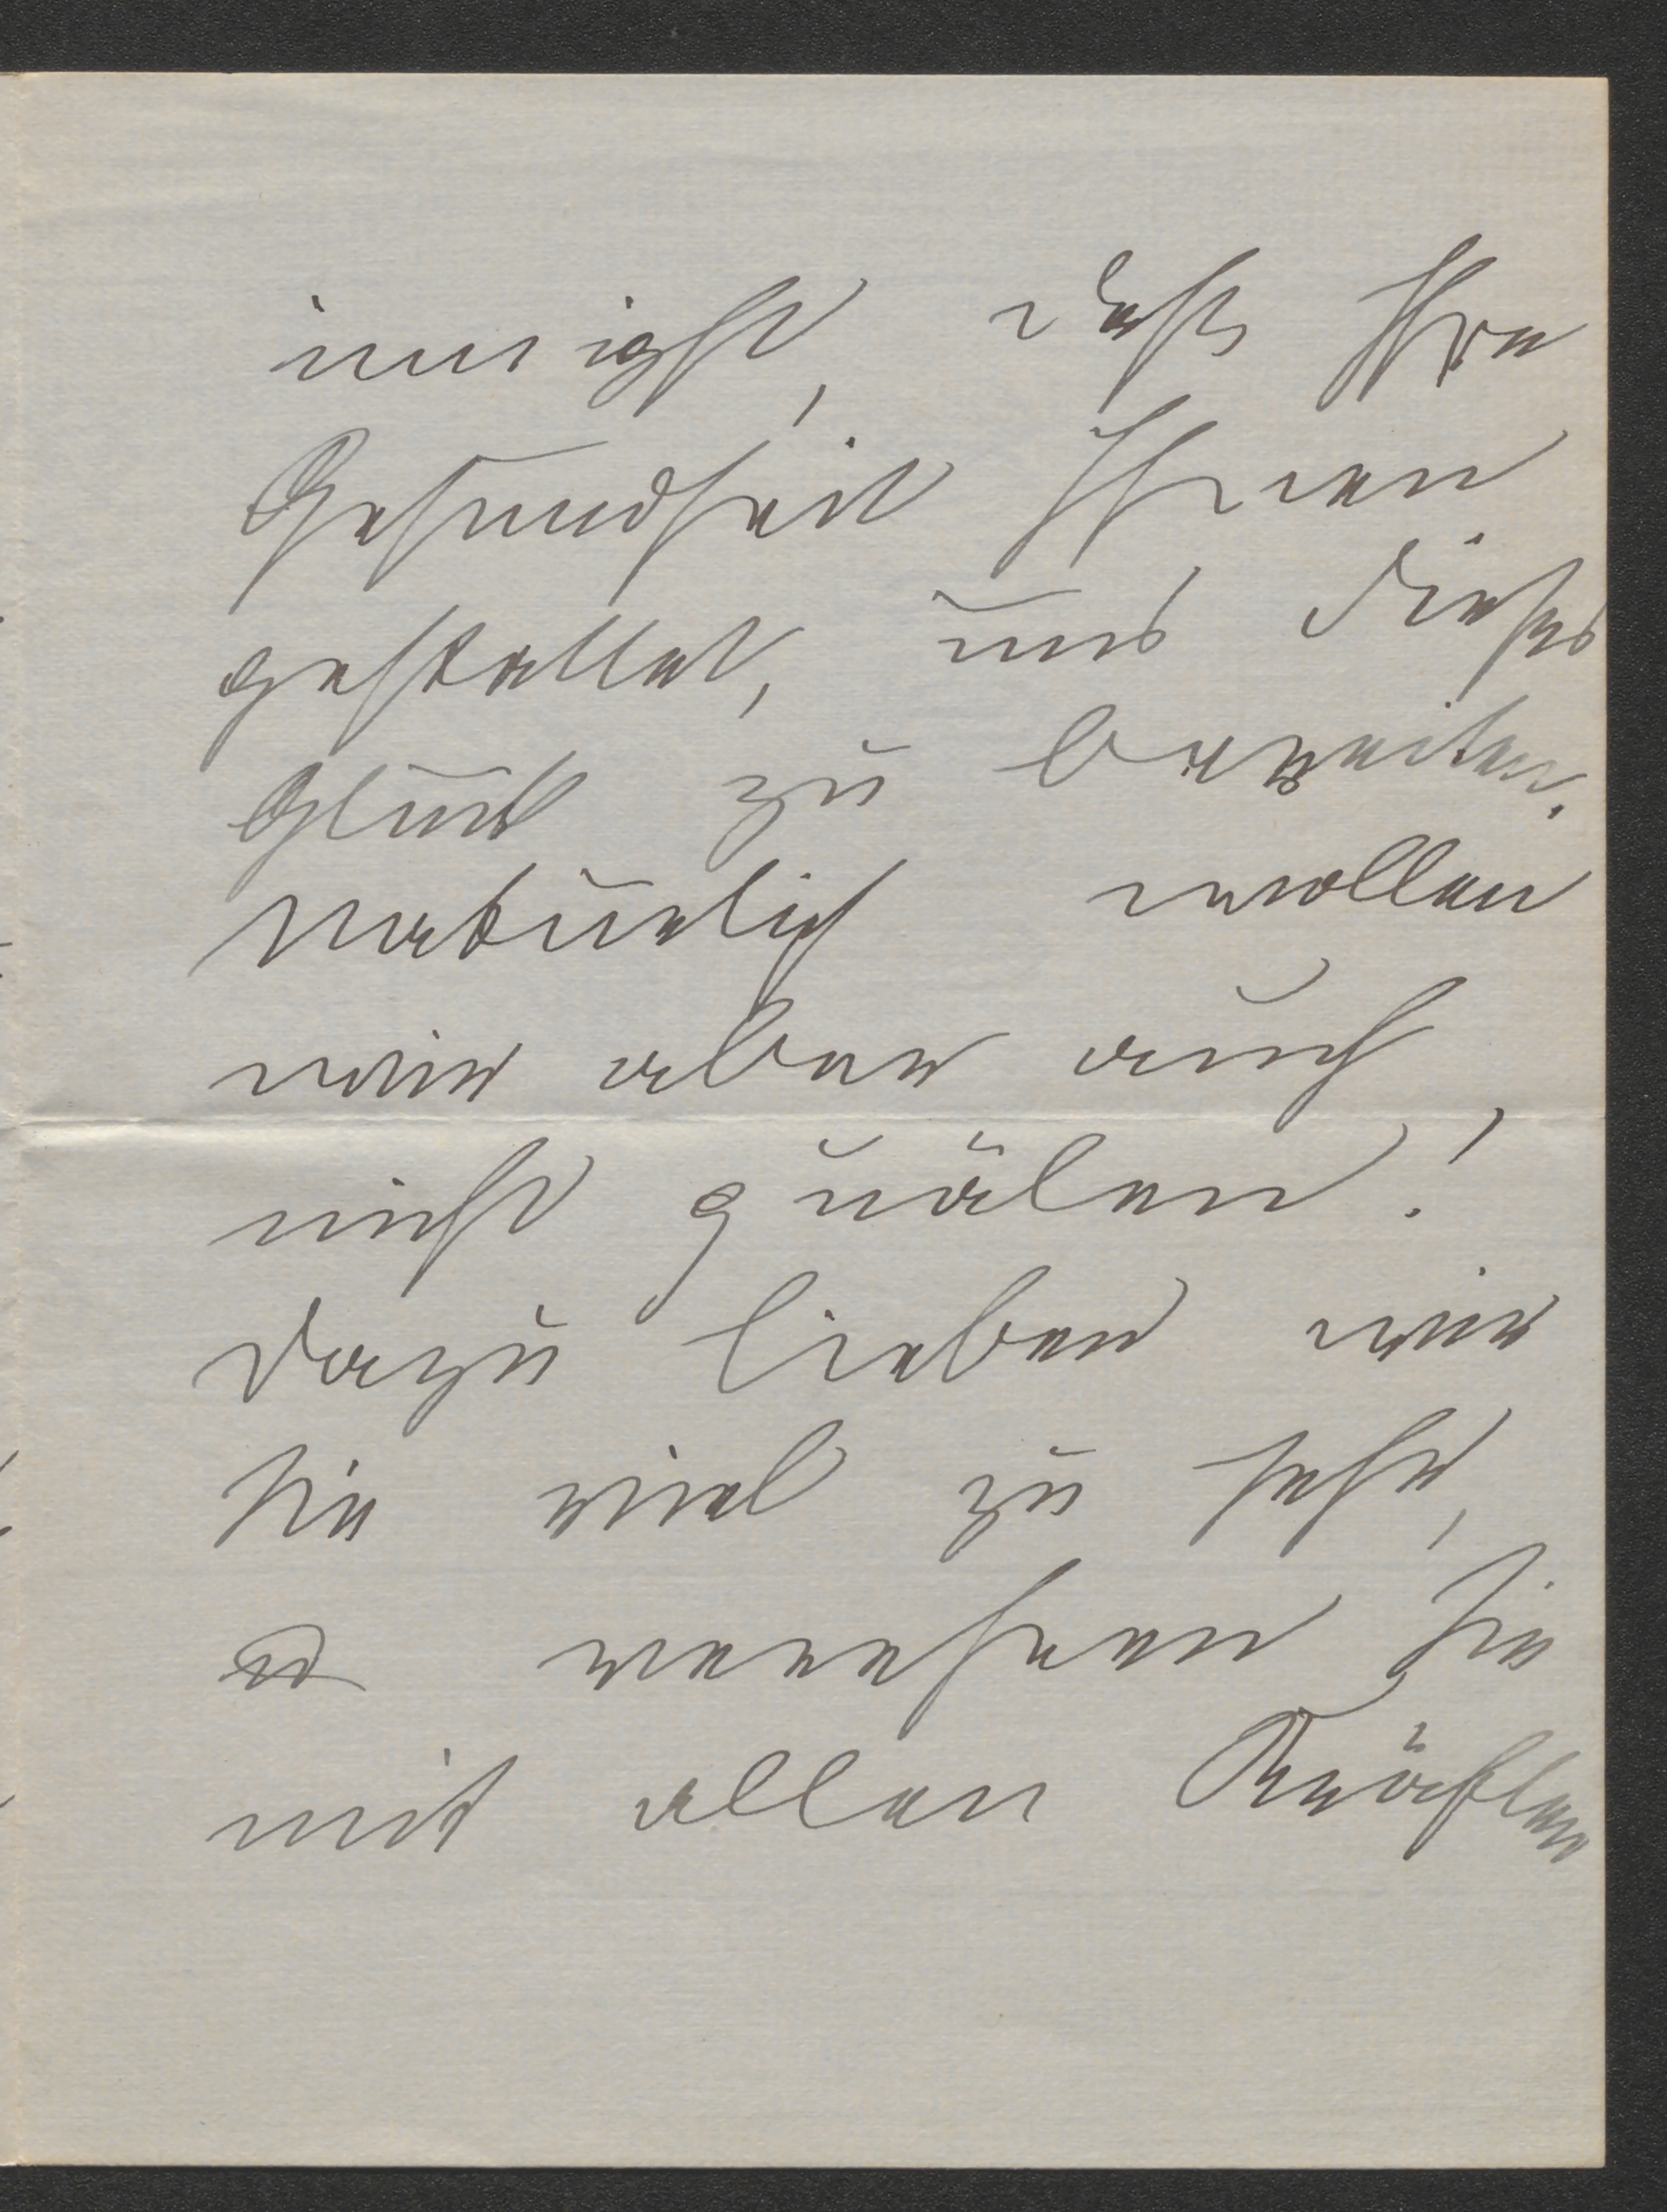 innigst, daß Ihre
Gesundheit Ihnen
gestattet, uns dieses
Glück zu bereiten.
Natürlich wollen
wir aber auch
nicht quälen!
Dazu lieben wir
Sie viel zu sehr,
u verehren Sie
mit allen Kräften